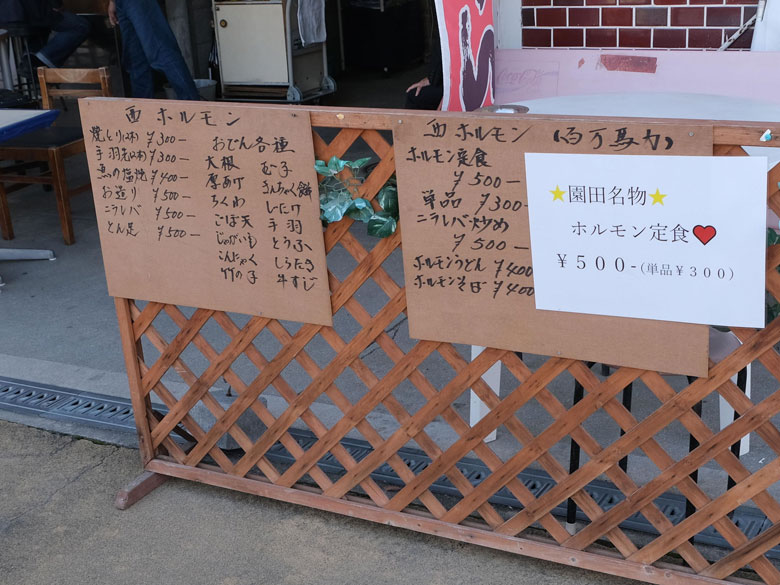 西 ホルモン
焼とり(2本) ¥300-
手羽先(2本) ¥300-
魚の塩焼 ¥400-
お造り ¥500-
ニラレバ ¥500-
とん足 ¥500-
おでん各種
大根 むす
厚あげ きんちゃく餅
ちくわ したけ
ごぼ天 手羽
じゃがいも とうふ
こんにゃく しらたき
竹の子 牛すじ
西 ホルモン (百万馬力)
ホルモン定食
¥500-
単品 ¥300-
ニラレバー炒め
¥500-
ホルモンうどん ¥400
ホルモンそば ¥400
★園田名物★
ホルモン定食♥
¥500-(単品¥300)